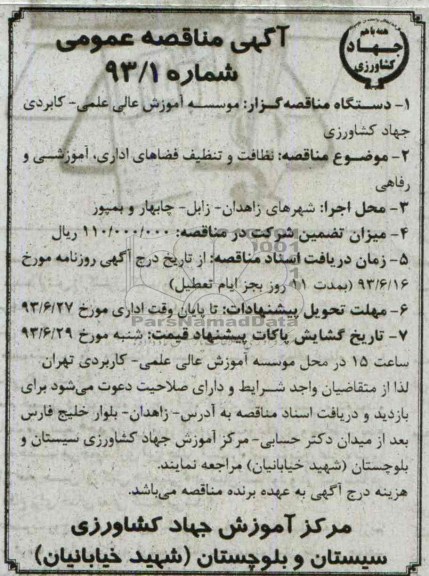 همه با هم
جهاد
کشاورزی
آگهی مناقصه عمومی
شماره ۹۳/۱
۱- دستگاه مناقصه‌گزار: موسسه آموزش عالی علمی- کابردی
جهاد کشاورزی
۲- موضوع مناقصه: نظافت و تنظیف فضاهای اداری، آموزشی و
رفاهی
۳- محل اجرا: شهرهای زاهدان- زابل- چابهار و بمپور
۴- میزان تضمین شرکت در مناقصه: ۱۱۰/۰۰۰/۰۰۰ ریال
۵- زمان دریافت اسناد مناقصه: از تاریخ درج آگهی روزنامه مورخ
۹۳/۶/۱۶ (بمدت ۱۱ روز بجز ایام تعطیل)
۶- مهلت تحویل پیشنهادات: تا پایان وقت اداری مورخ ۹۳/۶/۲۷
ParsNamadData
۷- تاریخ گشایش پاکات پیشنهاد قیمت: شنبه مورخ ۹۳/۶/۲۹
ساعت ۱۵ در محل موسسه آموزش عالی علمی- کاربردی تهران
لذا از متقاضیان واجد شرایط و دارای صلاحیت دعوت می‌شود برای
بازدید و دریافت اسناد مناقصه به آدرس- زاهدان- بلوار خلیج فارس
بعد از میدان دکتر حسابی- مرکز آموزش جهاد کشاورزی سیستان و
بلوچستان (شهید خیابانیان) مراجعه نمایند.
هزینه درج آگهی به عهده برنده مناقصه می‌باشد.
مرکز آموزش جهاد کشاورزی
سیستان و بلوچستان (شهید خیابانیان)